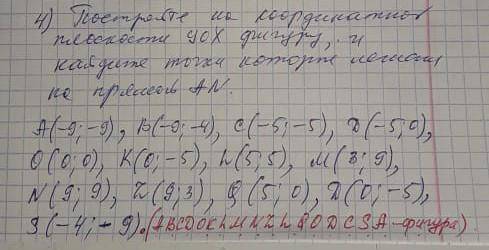 4) Постройте на координатной
плоскости YOX фигуру, и
найдите точки которые лежат
на прямой AN.
A(-9;-9), B(-9;-4), C(-5;-5), D(-5;0),
O(0;0), K(0;-5), L(5;5), M(3;9),
N(9;9), Z(9;3), Q(5;0), D(0;-5),
S(-4;-9). (ABCDOKLMNZLQODCSA-фигура)